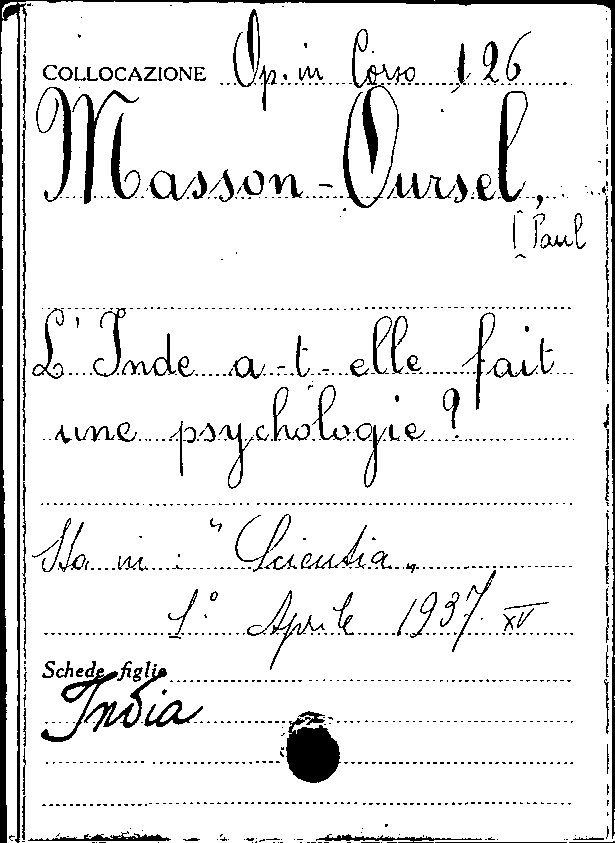 COLLOCAZIONE Op. in Corso 126
Masson-Oursel,
[Paul
L'Inde a-t-elle fait
une psychologie?
Sta in: "Scientia"
1.° Aprile 1937. XV
Schede figlie
India